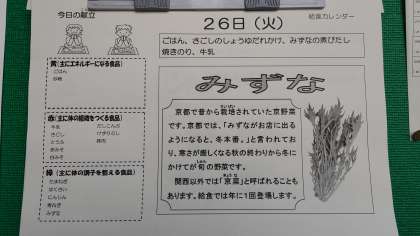 今日の献立
26日（火）
給食カレンダー
ごはん、さごしのしょうゆだれかけ、みずなの煮びたし
焼きのり、牛乳
黄（主にエネルギーになる食品）
ごはん
砂糖
赤（主に体の組織をつくる食品）
牛乳
さごし
とうふ
赤みそ
白みそ
だしこんぶ
けずりぶし
緑（主に体の調子を整える食品）
たまねぎ
はくさい
にんじん
青ねぎ
みずな
みずな
京都で昔から栽培されていた京野菜
です。京都では、「みずながお店に出る
ようになると、冬本番。」と言われてお
り、寒さが厳しくなる秋の終わりから冬に
かけてが旬の野菜です。
関西以外では「京菜」と呼ばれることも
あります。給食では年に1回登場します。